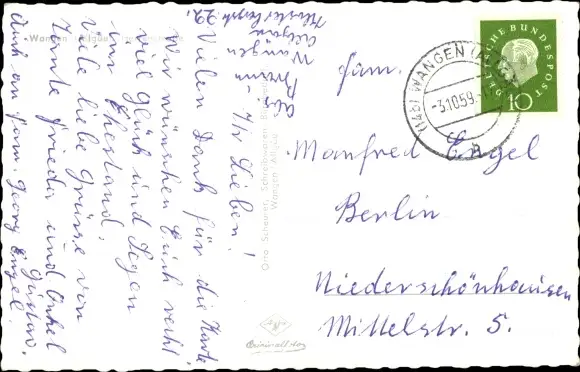 Ihr Lieben!
Vielen Dank für die Karte
Wir wünschen Euch recht
viel Glück und Segen
im Ehestand.
Viele liebe Grüsse von
Tante Frieda und Onkel
Gustav.
Auch an Fam. Georg Engel
Abs.
Wangen
Allgäu
DEUTSCHE BUNDESPOST
10
(14b) WANGEN (ALLGÄU)
-3.10.59.
a
Fam.
Manfred Engel
Berlin
Niederschönhausen
Mittelstr. 5.
Otto Scheerer, Schreibwaren
Wangen Allgäu
Wangen Allgäu